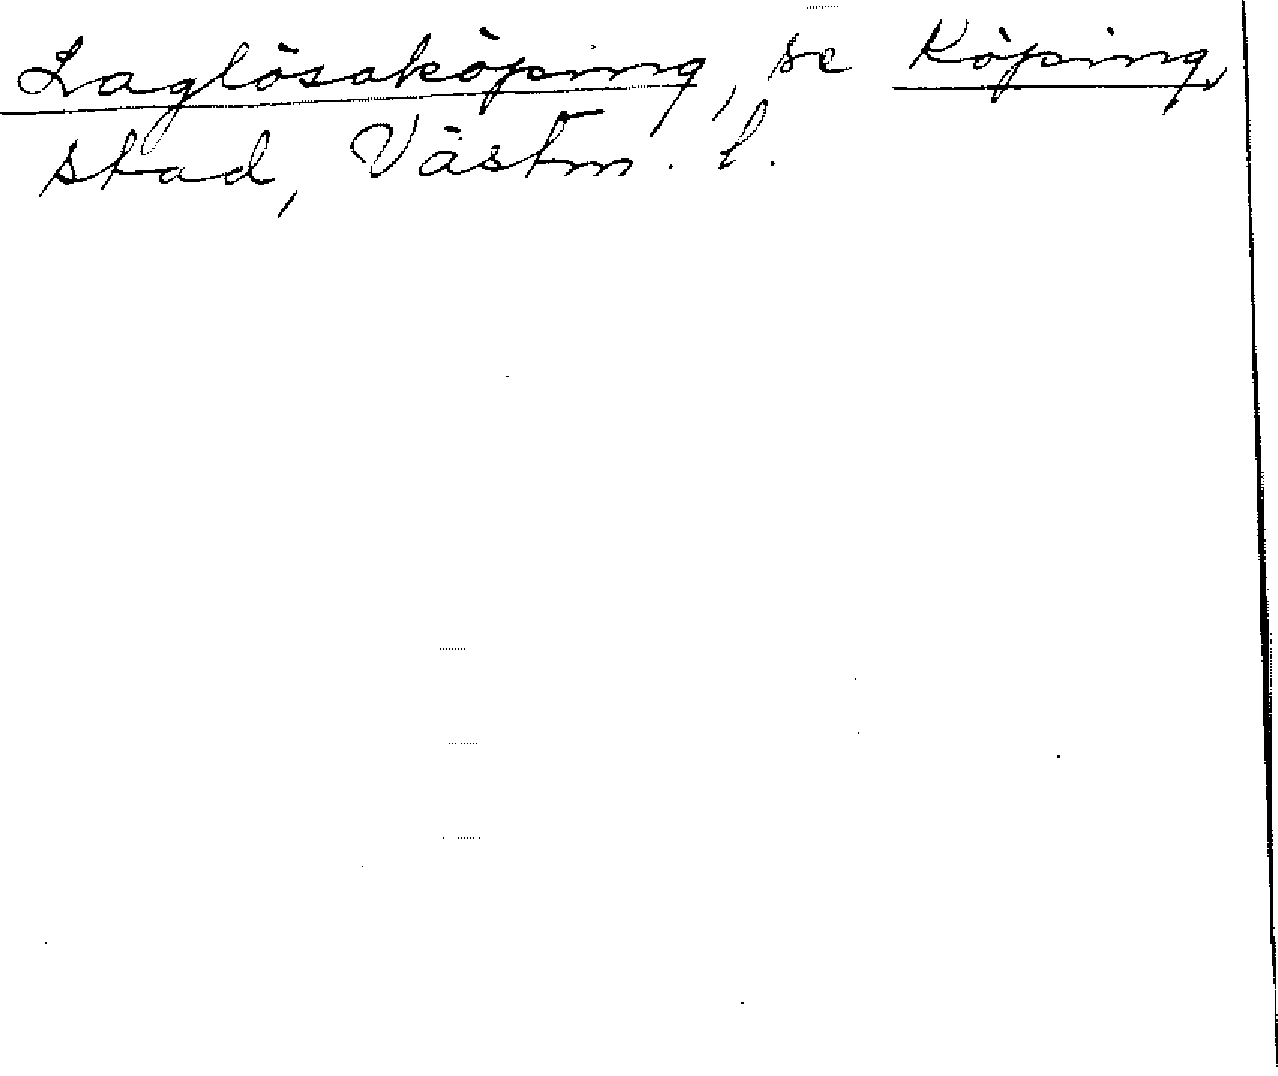 Laglösaköping, se Köping,
stad, Västm. l.